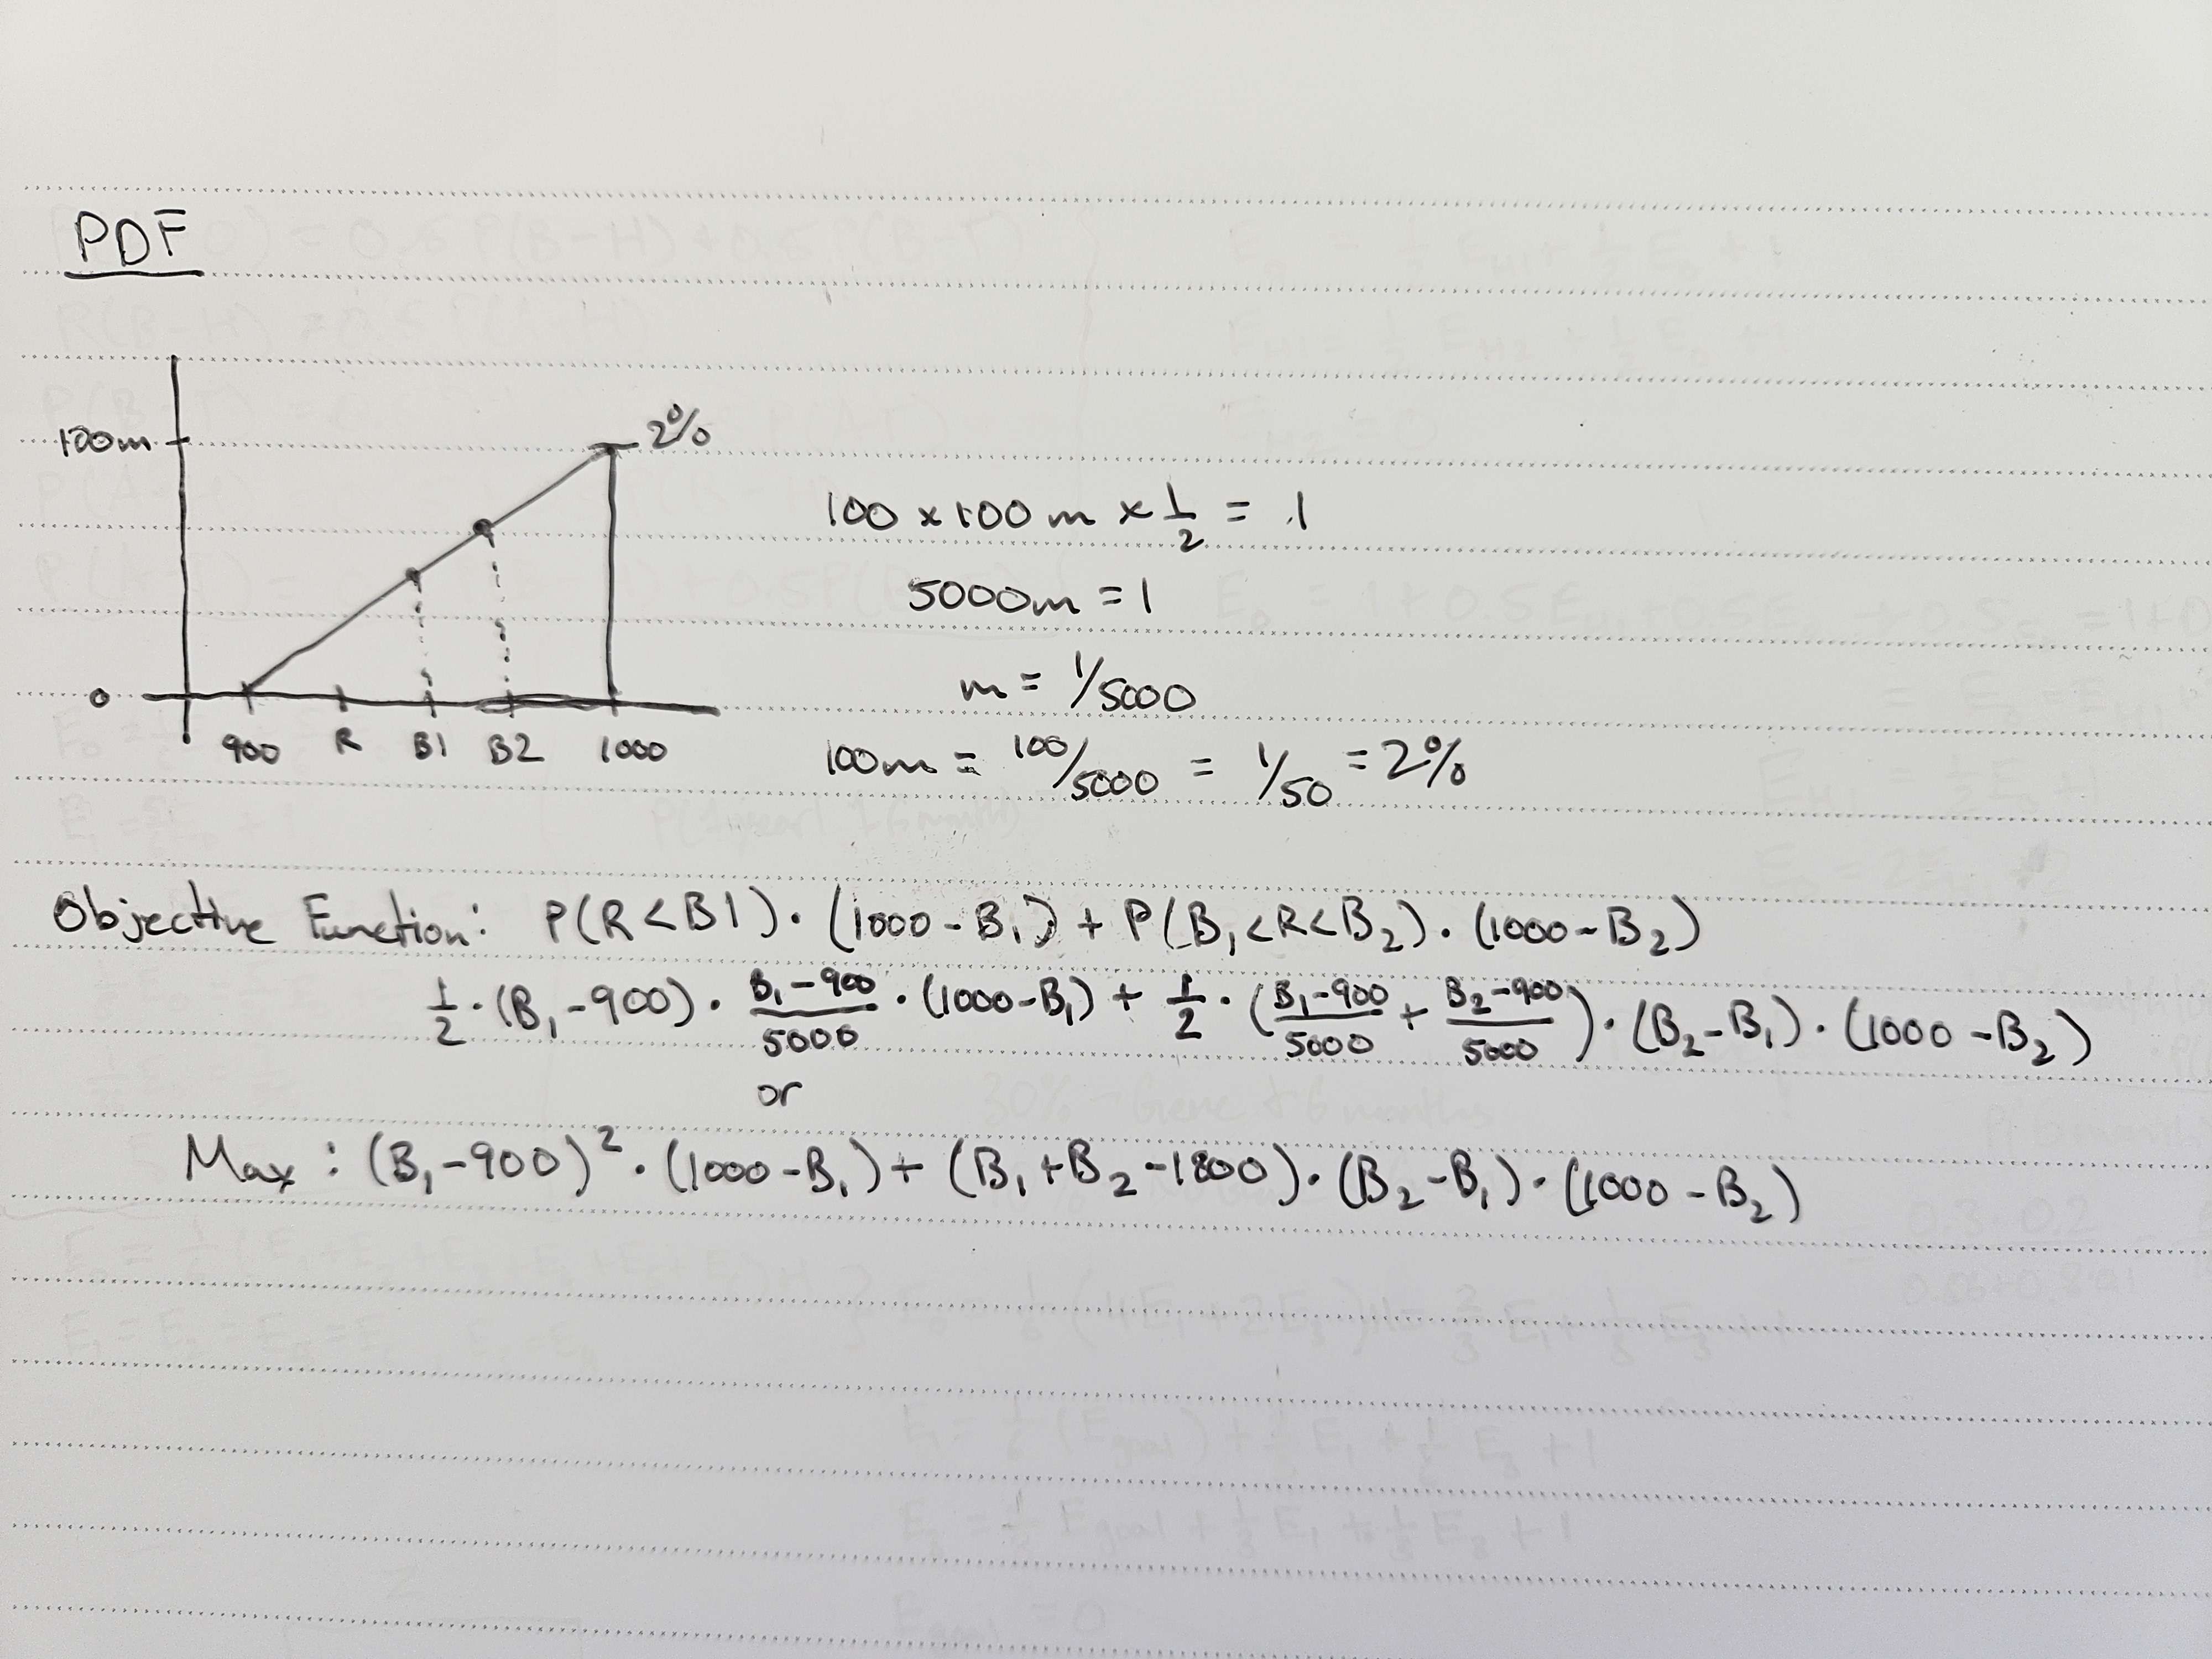 PDF
100m
2%
0
900 R B1 B2 1000
100 x 100m x 1/2 = 1
5000m = 1
m = 1/5000
100m = 100/5000 = 1/50 = 2%
Objective Function: P(R<B1)·(1000-B₁) + P(B₁<R<B₂)·(1000-B₂)
1/2·(B₁-900)·(B₁-900)/5000·(1000-B₁) + 1/2·((B₁-900)/5000 + (B₂-900)/5000)·(B₂-B₁)·(1000-B₂)
or
Max: (B₁-900)²·(1000-B₁) + (B₁+B₂-1800)·(B₂-B₁)·(1000-B₂)